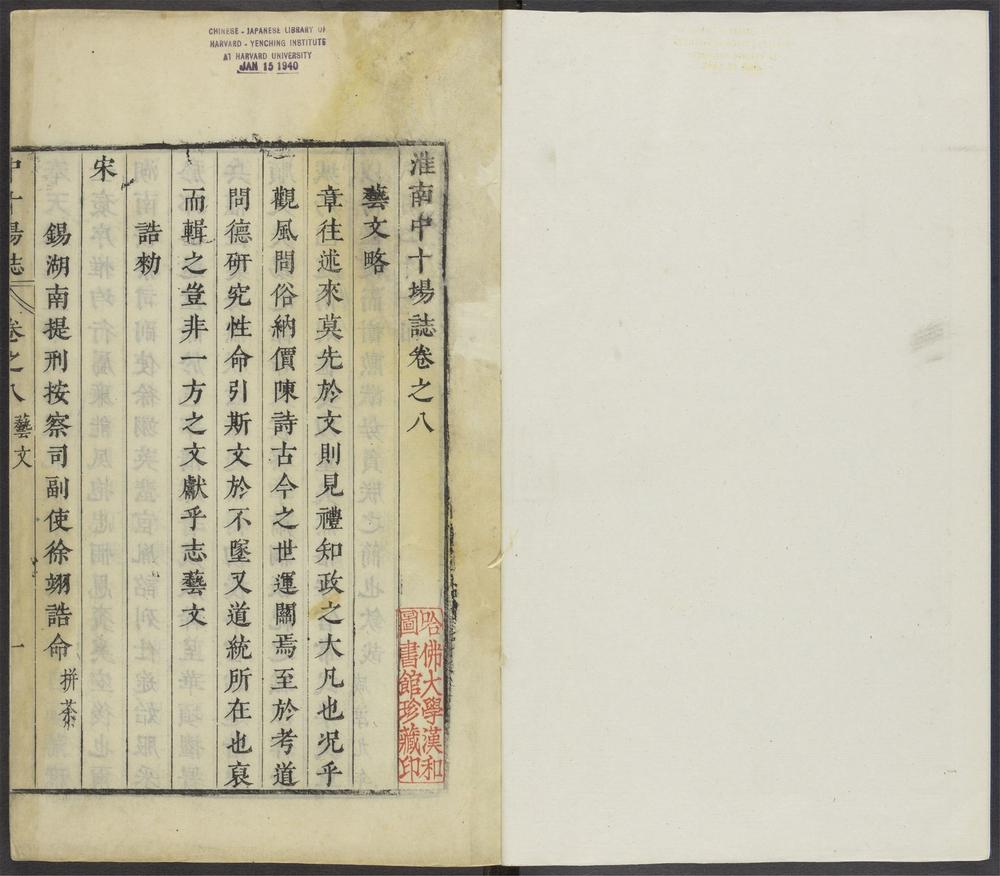 CHINESE - JAPANESE LIBRARY OF
HARVARD - YENCHING INSTITUTE
AT HARVARD UNIVERSITY
JAN 15 1940
淮南中十場誌卷之八
藝文略
章往述來莫先於文則見禮知政之大凡也况乎
觀風問俗納價陳詩古今之世運關焉至於考道
問德研究性命引斯文於不墜又道統所在也裒
而輯之豈非一方之文獻乎志藝文
誥勑
宋
錫湖南提刑按察司副使徐翊誥命 拼茶
中十場誌 卷之八 藝文 一
哈佛大學漢和
圖書館珍藏印